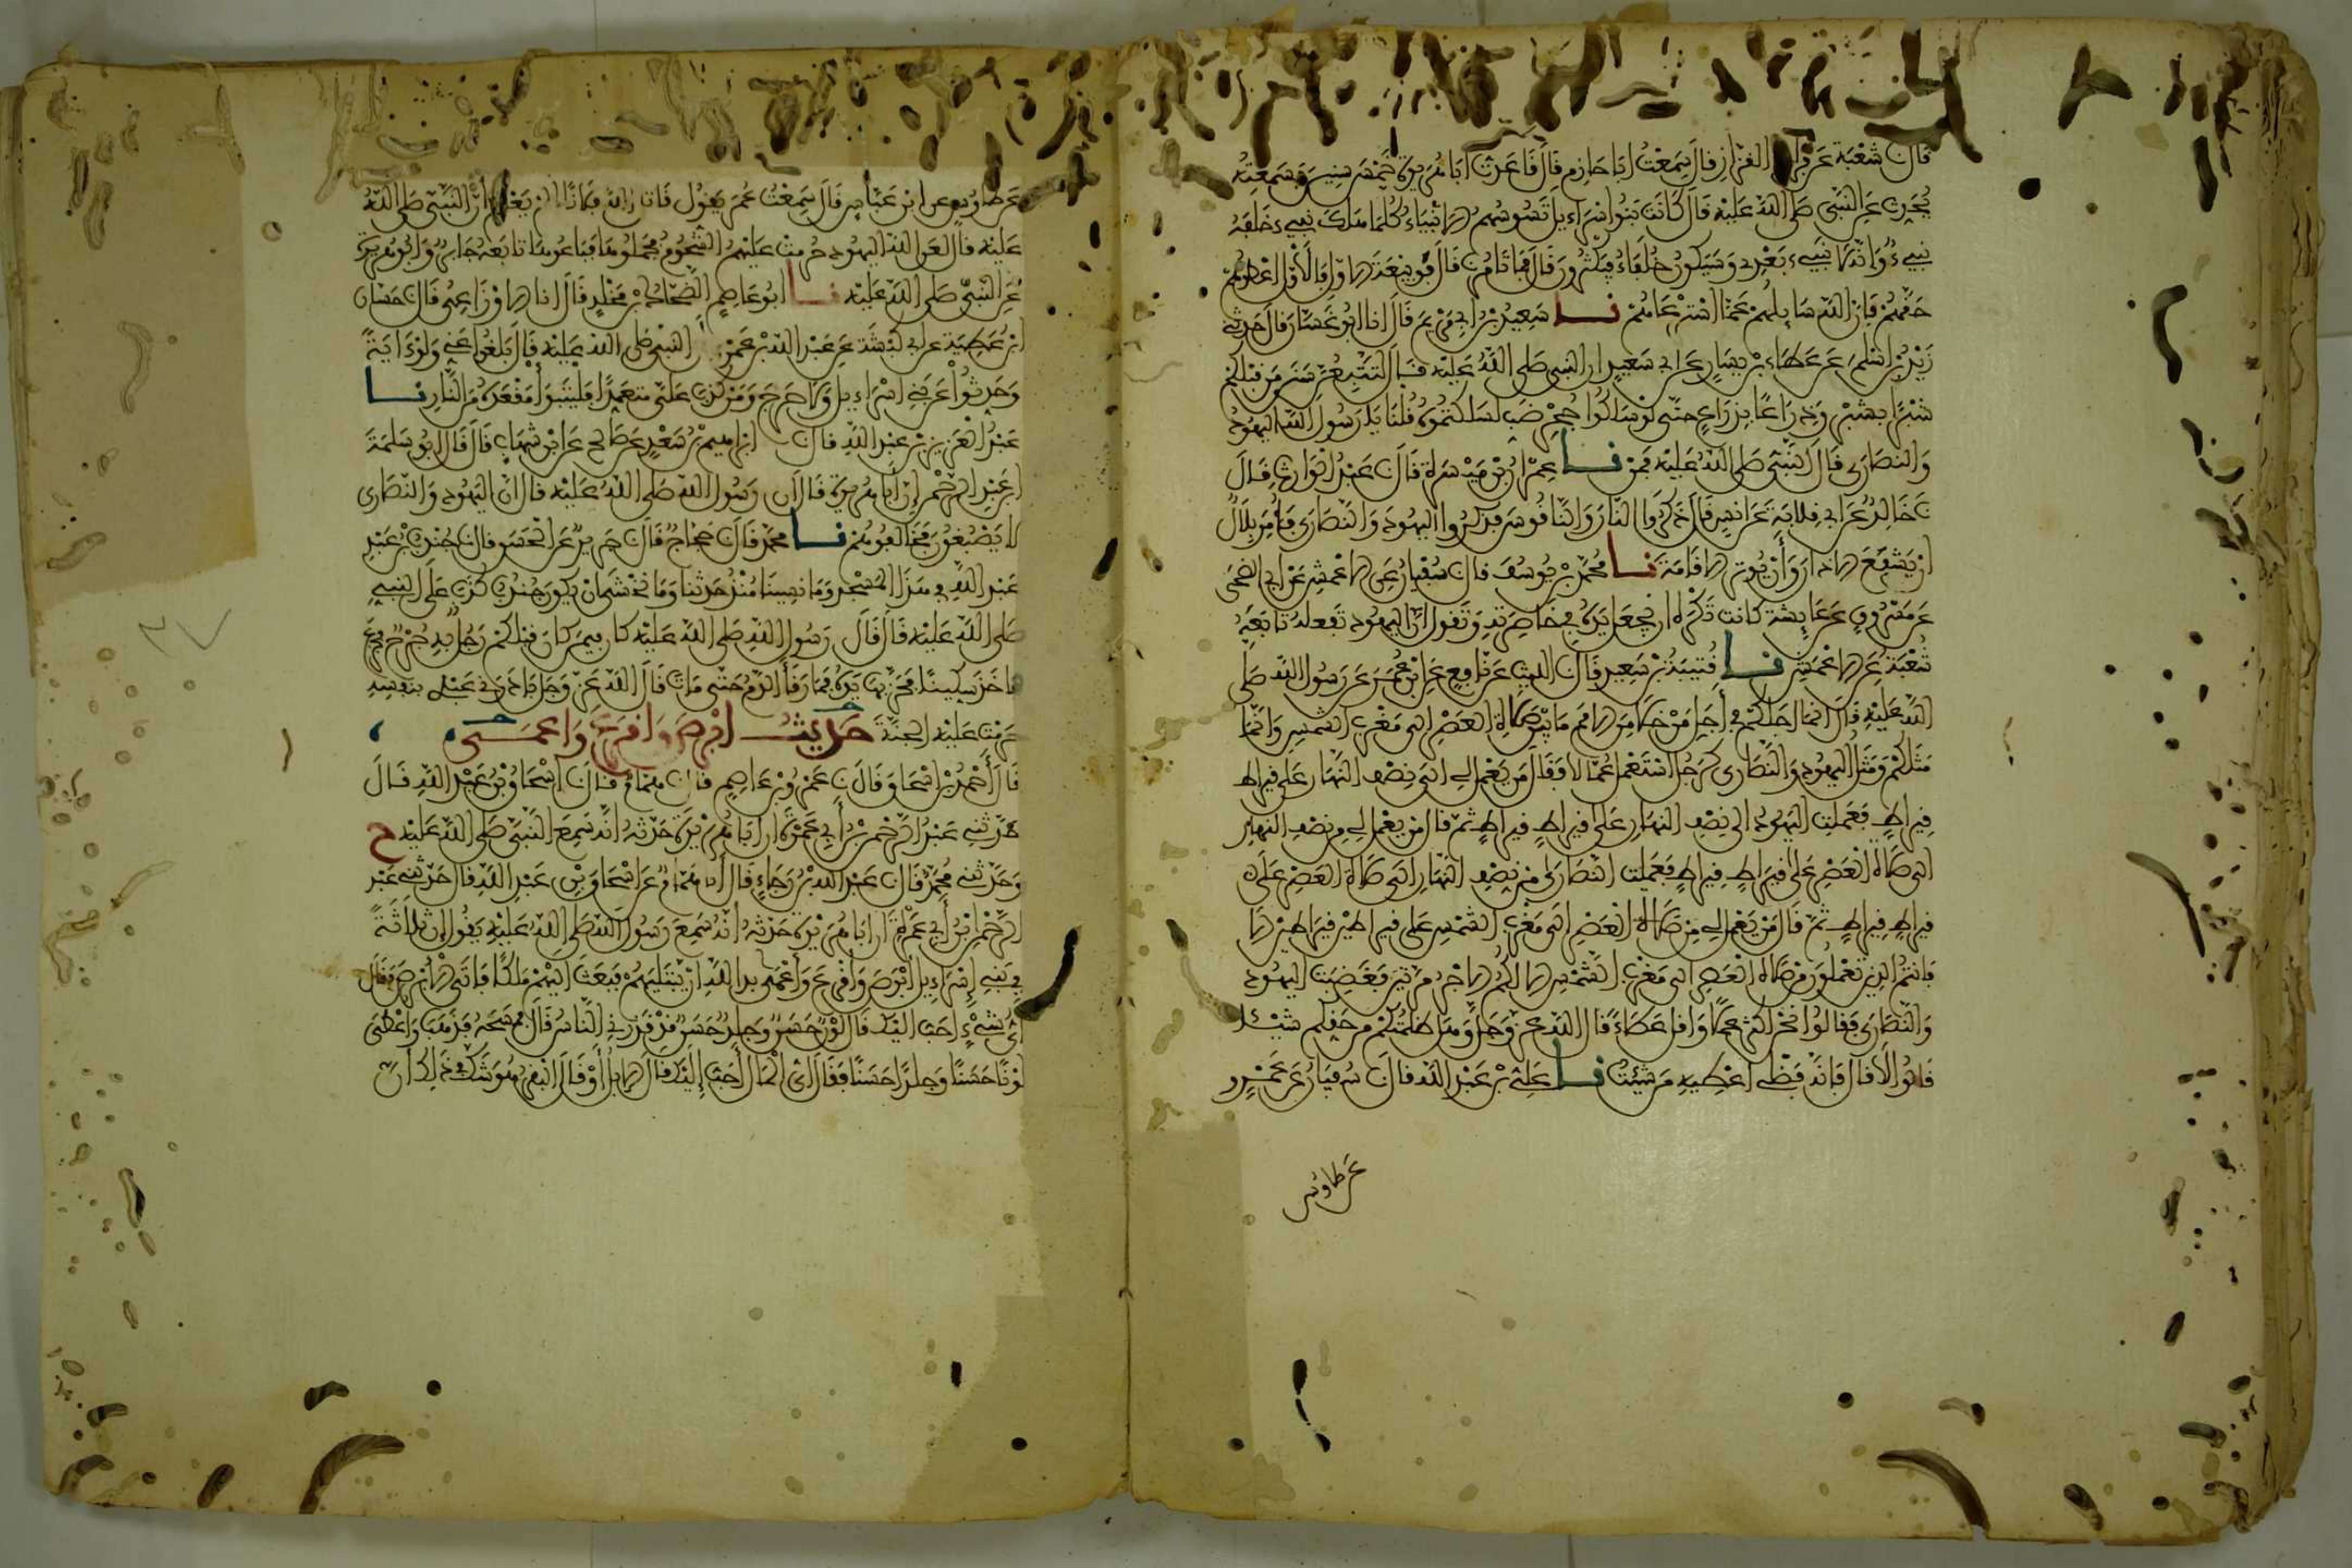 قال شعبة عن فرات القزاز قال سمعت ابا حازم قال قاعدت ابا هريرة خمس سنين فسمعته
يحدث عن النبي صلى الله عليه قال كانت بنوا اسراءيل تسوسهم الانبياء كلما هلك نبيء خلفه
نبيء وانه لا نبيء بعدي وسيكون خلفاء فيكثرون قال فما تامرنا قال فوا ببيعة الاول فالاول اعطوهم
حقهم فان الله سايلهم عما استرعاهم نا سعيد بن ابي مريم قال انا ابو غسان قال حدثني
زيد بن اسلم عن عطاء بن يسار عن ابي سعيد ان النبي صلى الله عليه قال لتتبعن سنن من قبلكم
شبرا بشبر وذراعا بذراع حتى لو سلكوا جحر ضب لسلكتموه قلنا يا رسول الله اليهود
والنصارى قال النبي صلى الله عليه فمن نا عمران بن ميسرة قال ن عبد الوارث قال
ن خالد عن ابي قلابة عن انس قال ذكروا النار والناقوس فذكروا اليهود والنصارى فامر بلال
ان يشفع الاذان وان يوتر الاقامة نا محمد بن يوسف قال ن سفيان عن الاعمش عن ابي الضحى
عن مسروق عن عايشة كانت تكره ان يجعل يده في خاصرته وتقول ان اليهود تفعله تابعه
شعبة عن الاعمش نا قتيبة بن سعيد قال ن الليث عن نافع عن ابن عمر عن رسول الله صلى
الله عليه قال انما اجلكم في اجل من خلا من الامم ما بين صلاة العصر الى مغرب الشمس وانما
مثلكم ومثل اليهود والنصارى كرجل استعمل عمالا فقال من يعمل لي الى نصف النهار على قيراط
قيراط فعملت اليهود الى نصف النهار على قيراط قيراط ثم قال من يعمل لي من نصف النهار
الى صلاة العصر على قيراط قيراط فعملت النصارى من نصف النهار الى صلاة العصر على
قيراط قيراط ثم قال من يعمل لي من صلاة العصر الى مغرب الشمس على قيراطين قيراطين الا
فانتم الذين تعملون من صلاة العصر الى مغرب الشمس الا لكم الاجر مرتين فغضبت اليهود
والنصارى فقالوا نحن اكثر عملا واقل عطاء قال الله عز وجل وهل ظلمتكم من حقكم شيئا
قالوا لا قال فانه فضلي اعطيه من شيت نا علي بن عبد الله قال ن سفيان عن عمرو
عن طاوس
عن طاوس عن ابن عباس قال سمعت عمر يقول قاتل الله فلانا الم يعلم ان النبي صلى الله
عليه قال لعن الله اليهود حرمت عليهم الشحوم فجملوها فباعوها تابعه جابر وابو هريرة
عن النبي صلى الله عليه نا ابو عاصم الضحاك بن مخلد قال انا الاوزاعي قال ن حسان
ابن عطية عن ابي كبشة عن عبد الله بن عمرو ان النبي صلى الله عليه قال بلغوا عني ولو ءاية
وحدثوا عن بني اسراءيل ولا حرج ومن كذب علي متعمدا فليتبوا مقعده من النار نا
عبد العزيز بن عبد الله قال ن ابراهيم بن سعد عن صالح عن ابن شهاب قال قال ابو سلمة
ابن عبد الرحمن ان ابا هريرة قال ان رسول الله صلى الله عليه قال ان اليهود والنصارى
لا يصبغون فخالفوهم نا محمد قال ن حجاج قال ن جرير عن الحسن قال ن جندب بن عبد
عبد الله في هذا المسجد وما نسينا منذ حدثنا وما نخشى ان يكون جندب كذب على النبي
صلى الله عليه قال قال رسول الله صلى الله عليه كان فيمن كان قبلكم رجل به جرح فجزع
فاخذ سكينا فحز بها يده فما رقأ الدم حتى مات قال الله عز وجل بادرني عبدي بنفسه
حرمت عليه الجنة حديث ابرص واقرع واعمى
نا أحمد بن اسحاق قال ن عمرو بن عاصم قال ن همام قال ن اسحاق بن عبد الله قال
حدثني عبد الرحمن بن أبي عمرة ان ابا هريرة حدثه انه سمع النبي صلى الله عليه ح
وحدثني محمد قال ن عبد الله بن رجاء قال أنا همام عن اسحاق بن عبد الله قال حدثني عبد
الرحمن ابن أبي عمرة ان ابا هريرة حدثه أنه سمع رسول الله صلى الله عليه يقول ان ثلاثة
في بني إسراءيل أبرص واقرع وأعمى بدا لله ان يبتليهم فبعث اليهم ملكا فاتى الأبرص فقال
أي شيء احب اليك قال لون حسن وجلد حسن قد قذرني الناس قال فمسحه فذهب واعطي
لونا حسنا وجلدا حسنا فقال اي المال أحب إليك قال الابل أو قال البقر هو شك في ذلك ان